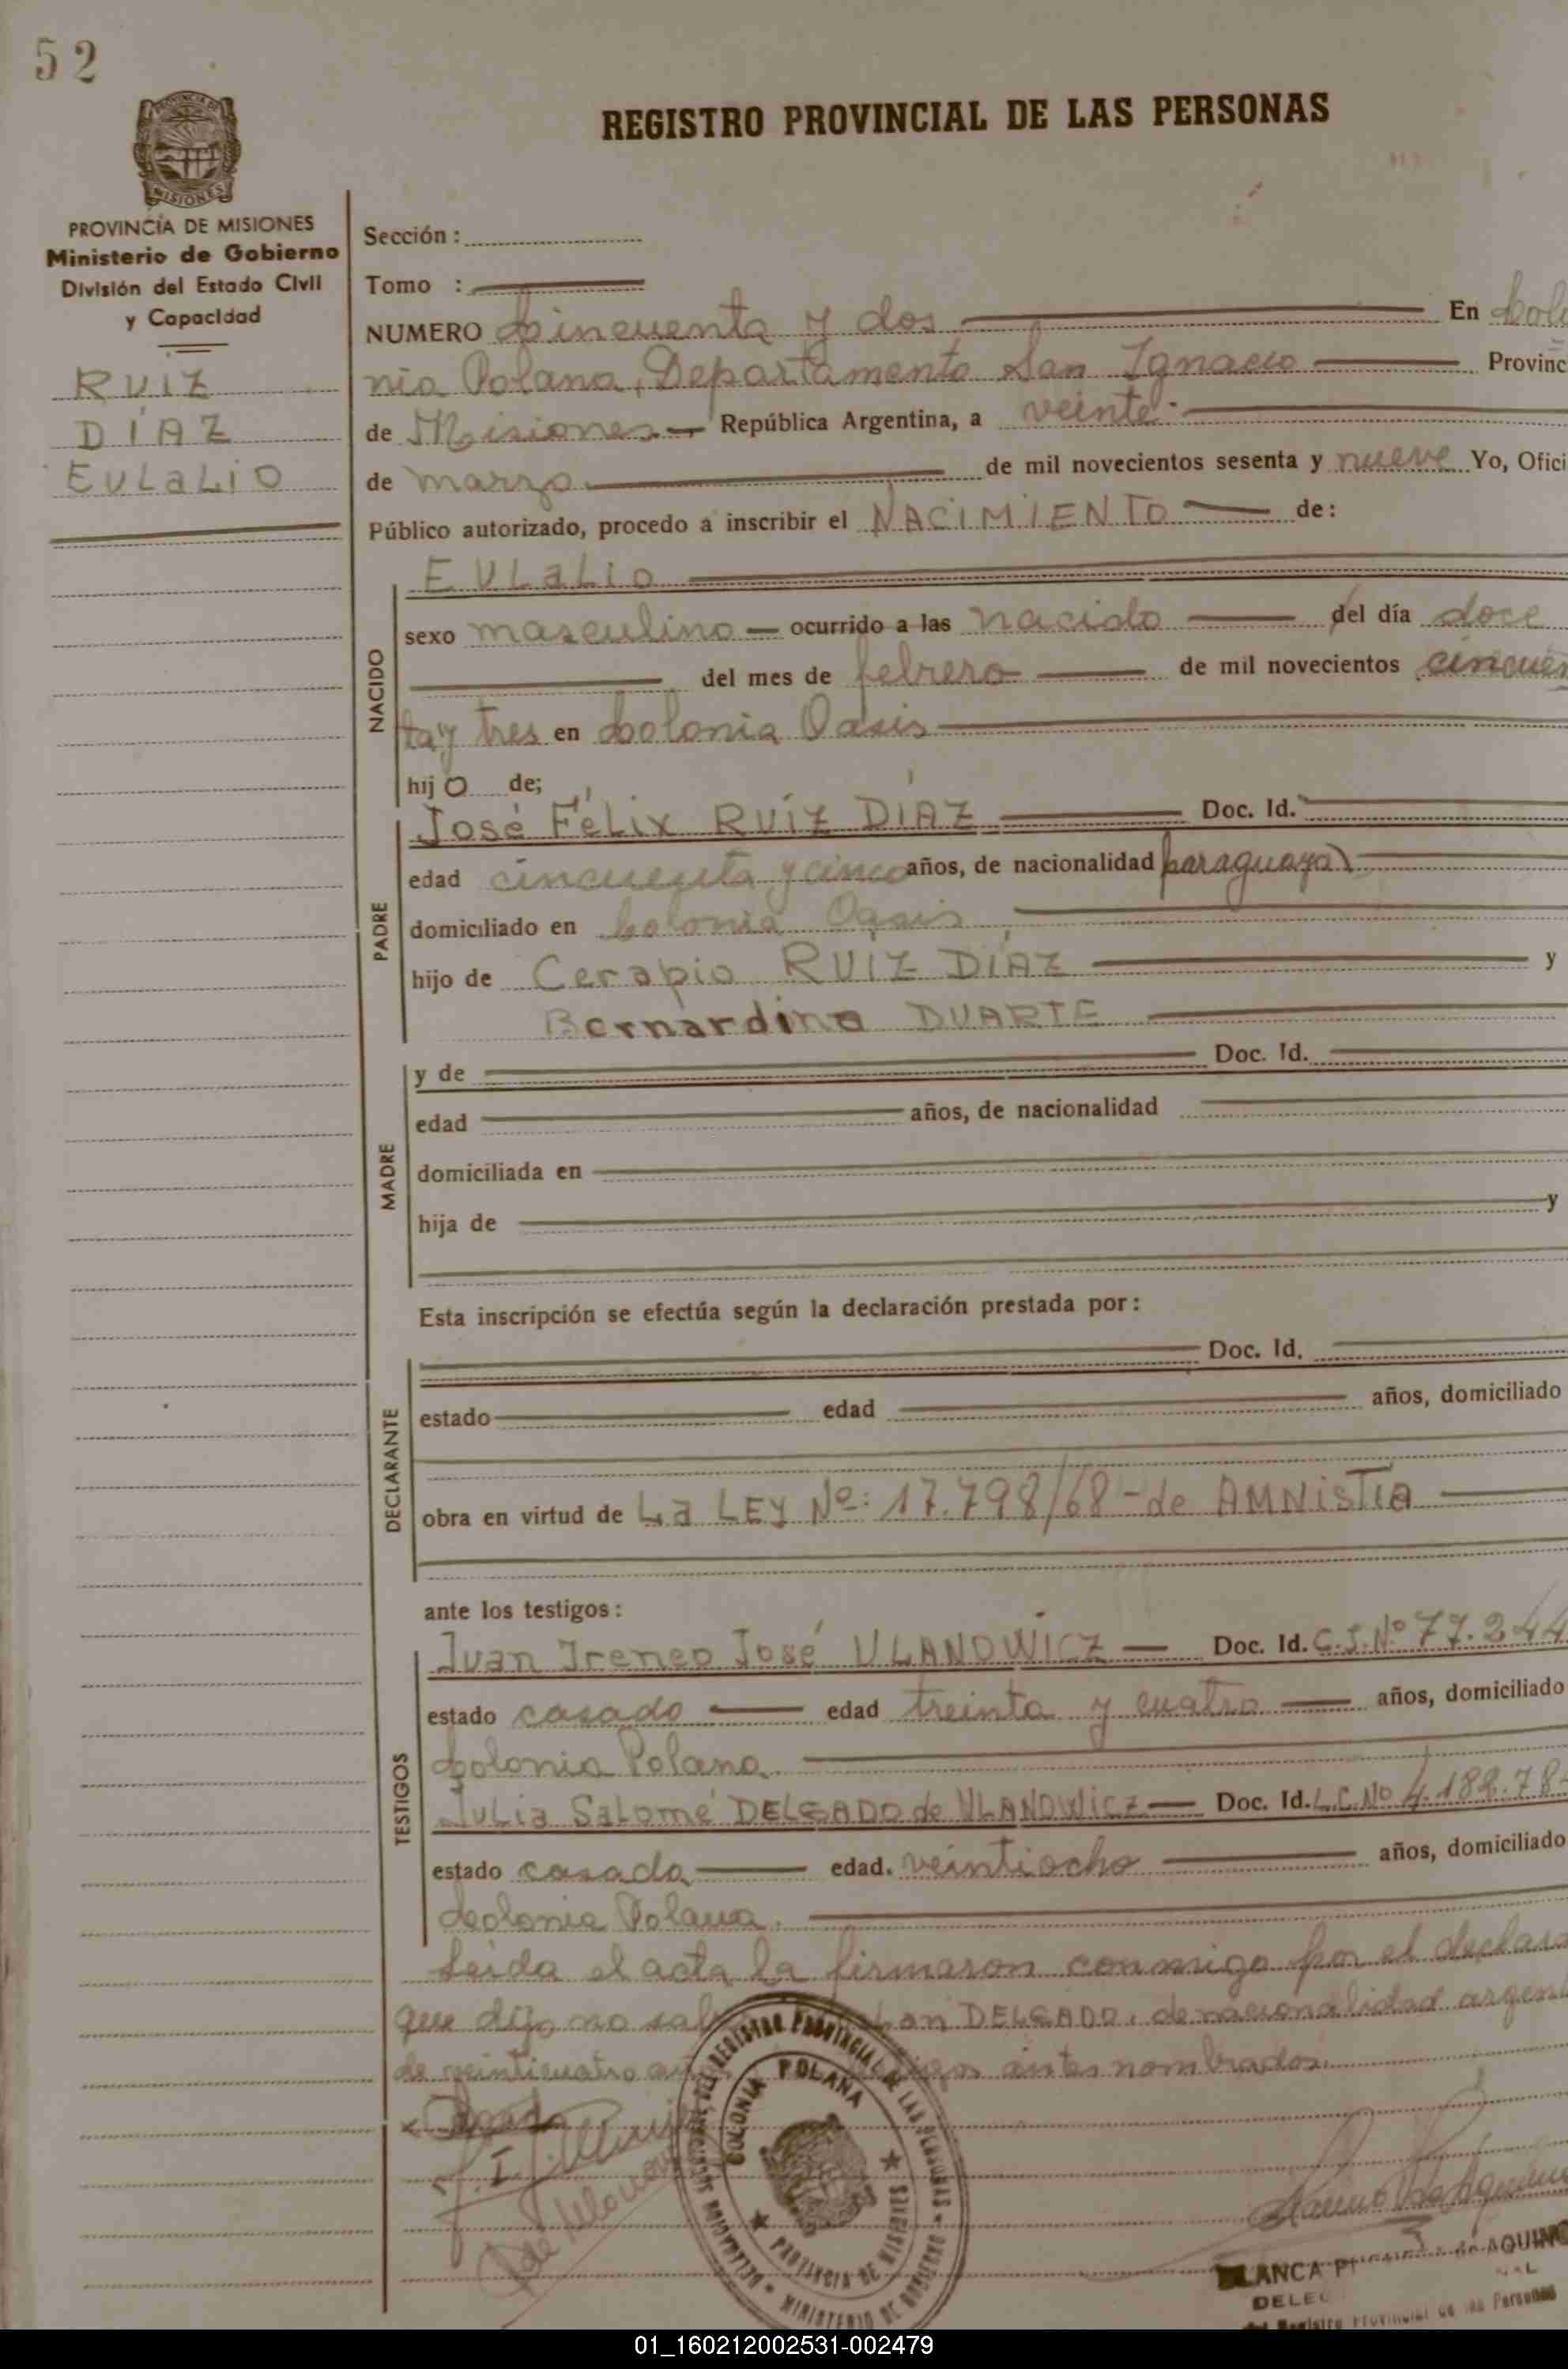 52
REGISTRO PROVINCIAL DE LAS PERSONAS
PROVINCIA DE MISIONES
Ministerio de Gobierno
División del Estado Civil
y Capacidad
RUIZ
DÍAZ
EULALIO
Sección :
Tomo :
NUMERO Cincuenta y dos En Colo
nia Polana, Departamento San Ignacio Provinc
de Misiones República Argentina, a veinte
de marzo de mil novecientos sesenta y nueve Yo, Ofici
Público autorizado, procedo a inscribir el NACIMIENTO de:
NACIDO
EULALIO
sexo masculino ocurrido a las nacido del día doce
del mes de febrero de mil novecientos cincuen
ta y tres en Colonia Oasis
hijo de;
PADRE
José Félix RUÍZ DÍAZ Doc. Id.
edad cincuenta y cinco años, de nacionalidad paraguaya
domiciliado en Colonia Oasis
hijo de Cerapio RUÍZ DÍAZ y
Bernardina DUARTE
MADRE
y de Doc. Id.
edad años, de nacionalidad
domiciliada en
hija de y
Esta inscripción se efectúa según la declaración prestada por:
DECLARANTE
Doc. Id.
estado edad años, domiciliado
obra en virtud de La LEY Nº: 17.798/68 - de AMNISTIA
ante los testigos:
TESTIGOS
Juan Ireneo José ULANOWICZ Doc. Id. C.I. Nº 77.244
estado casado edad treinta y cuatro años, domiciliado
Colonia Polana
Julia Salomé DELGADO de ULANOWICZ Doc. Id. L.C. Nº 4.182.78
estado casada edad. veintiocho años, domiciliado
Colonia Polana.
Leída el acta la firmaron conmigo por el declara
que dijo no sab DELGADO, de nacionalidad argent
de veinticuatro antes nombrados.
DELEGACION REGISTRO PROVINCIAL DE LAS PERSONAS
COLONIA POLANA
PROVINCIA DE MISIONES
MINISTERIO DE GOBIERNO
BLANCA de AQUINO
DELEG
del Registro Provincial de las Personas
01_160212002531-002479